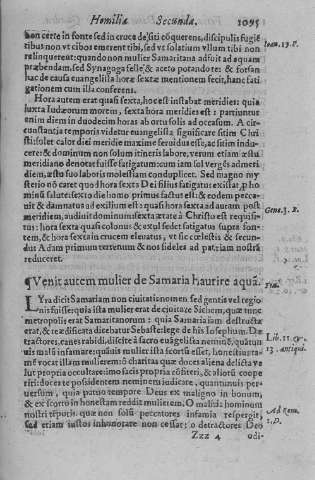 Homiliæ Secunda. 1095
non certe in fonte sed in cruce desiti coquerens, discipulis fugiē
tibus non vt cibos emerent tibi, sed vt solatium vllum tibi non
relinquerent: quando non mulier Samaritana adfuit ad aquam
præbendam, sed Synagoga felle & aceto potando te: & forsan
hac de causa euangelista horæ sextæ mentionem fecit, hanc fati
gationem cum illa conferens.
Ioan. 19. F.
Hora autem erat quasi sexta, hoc est instabat meridies: quia
iuxta Iudæorum morem, sexta hora meridies est: partiuntur
enim diem in duodecim horas ab ortu solis ad occasum. A cir
cunstantia temporis videtur euangelista significare sitim Chri
sti: solet calor diei meridie maxime feruidus esse, ac sitim indu
cere: & dominum non solum itineris labore, verum etiam æstu
meridiano denotat fuisse fatigatum: cum iam sol vergās ad meri
diem, æstu suo laboris molestiam conduplicet. Sed magno my
sterio nō caret quod hora sexta Dei filius fatigatus exsistat, pro ho
minū salute: sexta die homo primus factus est: & eodem pecca-
uit & damnatus ad exilium est: & quasi hora sexta ad auram post
meridiem, audiuit dominum: sexta ætate à Christo est requisi-
tus: hora sexta quasi colonus & exul sedet fatigatus supra fon-
tem, & hora sexta in crucem eleuatur, vt sic cælestis & secun-
dus Adam primum terrenum & nos fideles ad patriam nostrā
reduceret.
Gene. 3. B.
¶ Venit autem mulier de Samaria haurire aquā.
LYra dicit Samariam non ciuitati nomen sed gentis vel regio
nis fuisse: quia ista mulier erat de ciuitate Sichem, quæ tunc
metropolis erat Samaritanorum: quia Samaria iam destructa
erat, & reædificata dicebatur Sebaste: lege de his Iosephum. De
tractores, canes rabidi, discite à sacro euāgelista neminē, quātun
uis malū infamare: quāuis mulier ista scorta esset, honesti vita-
mē vocat illam mulierem: ô charitas quæ doces aliena delicta ve
lut propria occultare: imo facis propria cōfiteri, & aliorū cope
riri: doce te possidentem neminem iudicare, quantumuis per
uersum, quia patuo tempore Deus ex maligno in bonum,
& ex scorto in honestam reddit mulierem. O malitia hominum
nostri tēporis, quæ non solū peccatores infamia respergit,
sed etiam iustos inhonorare non cessat: o detractores Deo
Lib. 11. cp.
13. antiqui.
Ad Rom.
1. D.
Zzz 4 odi-